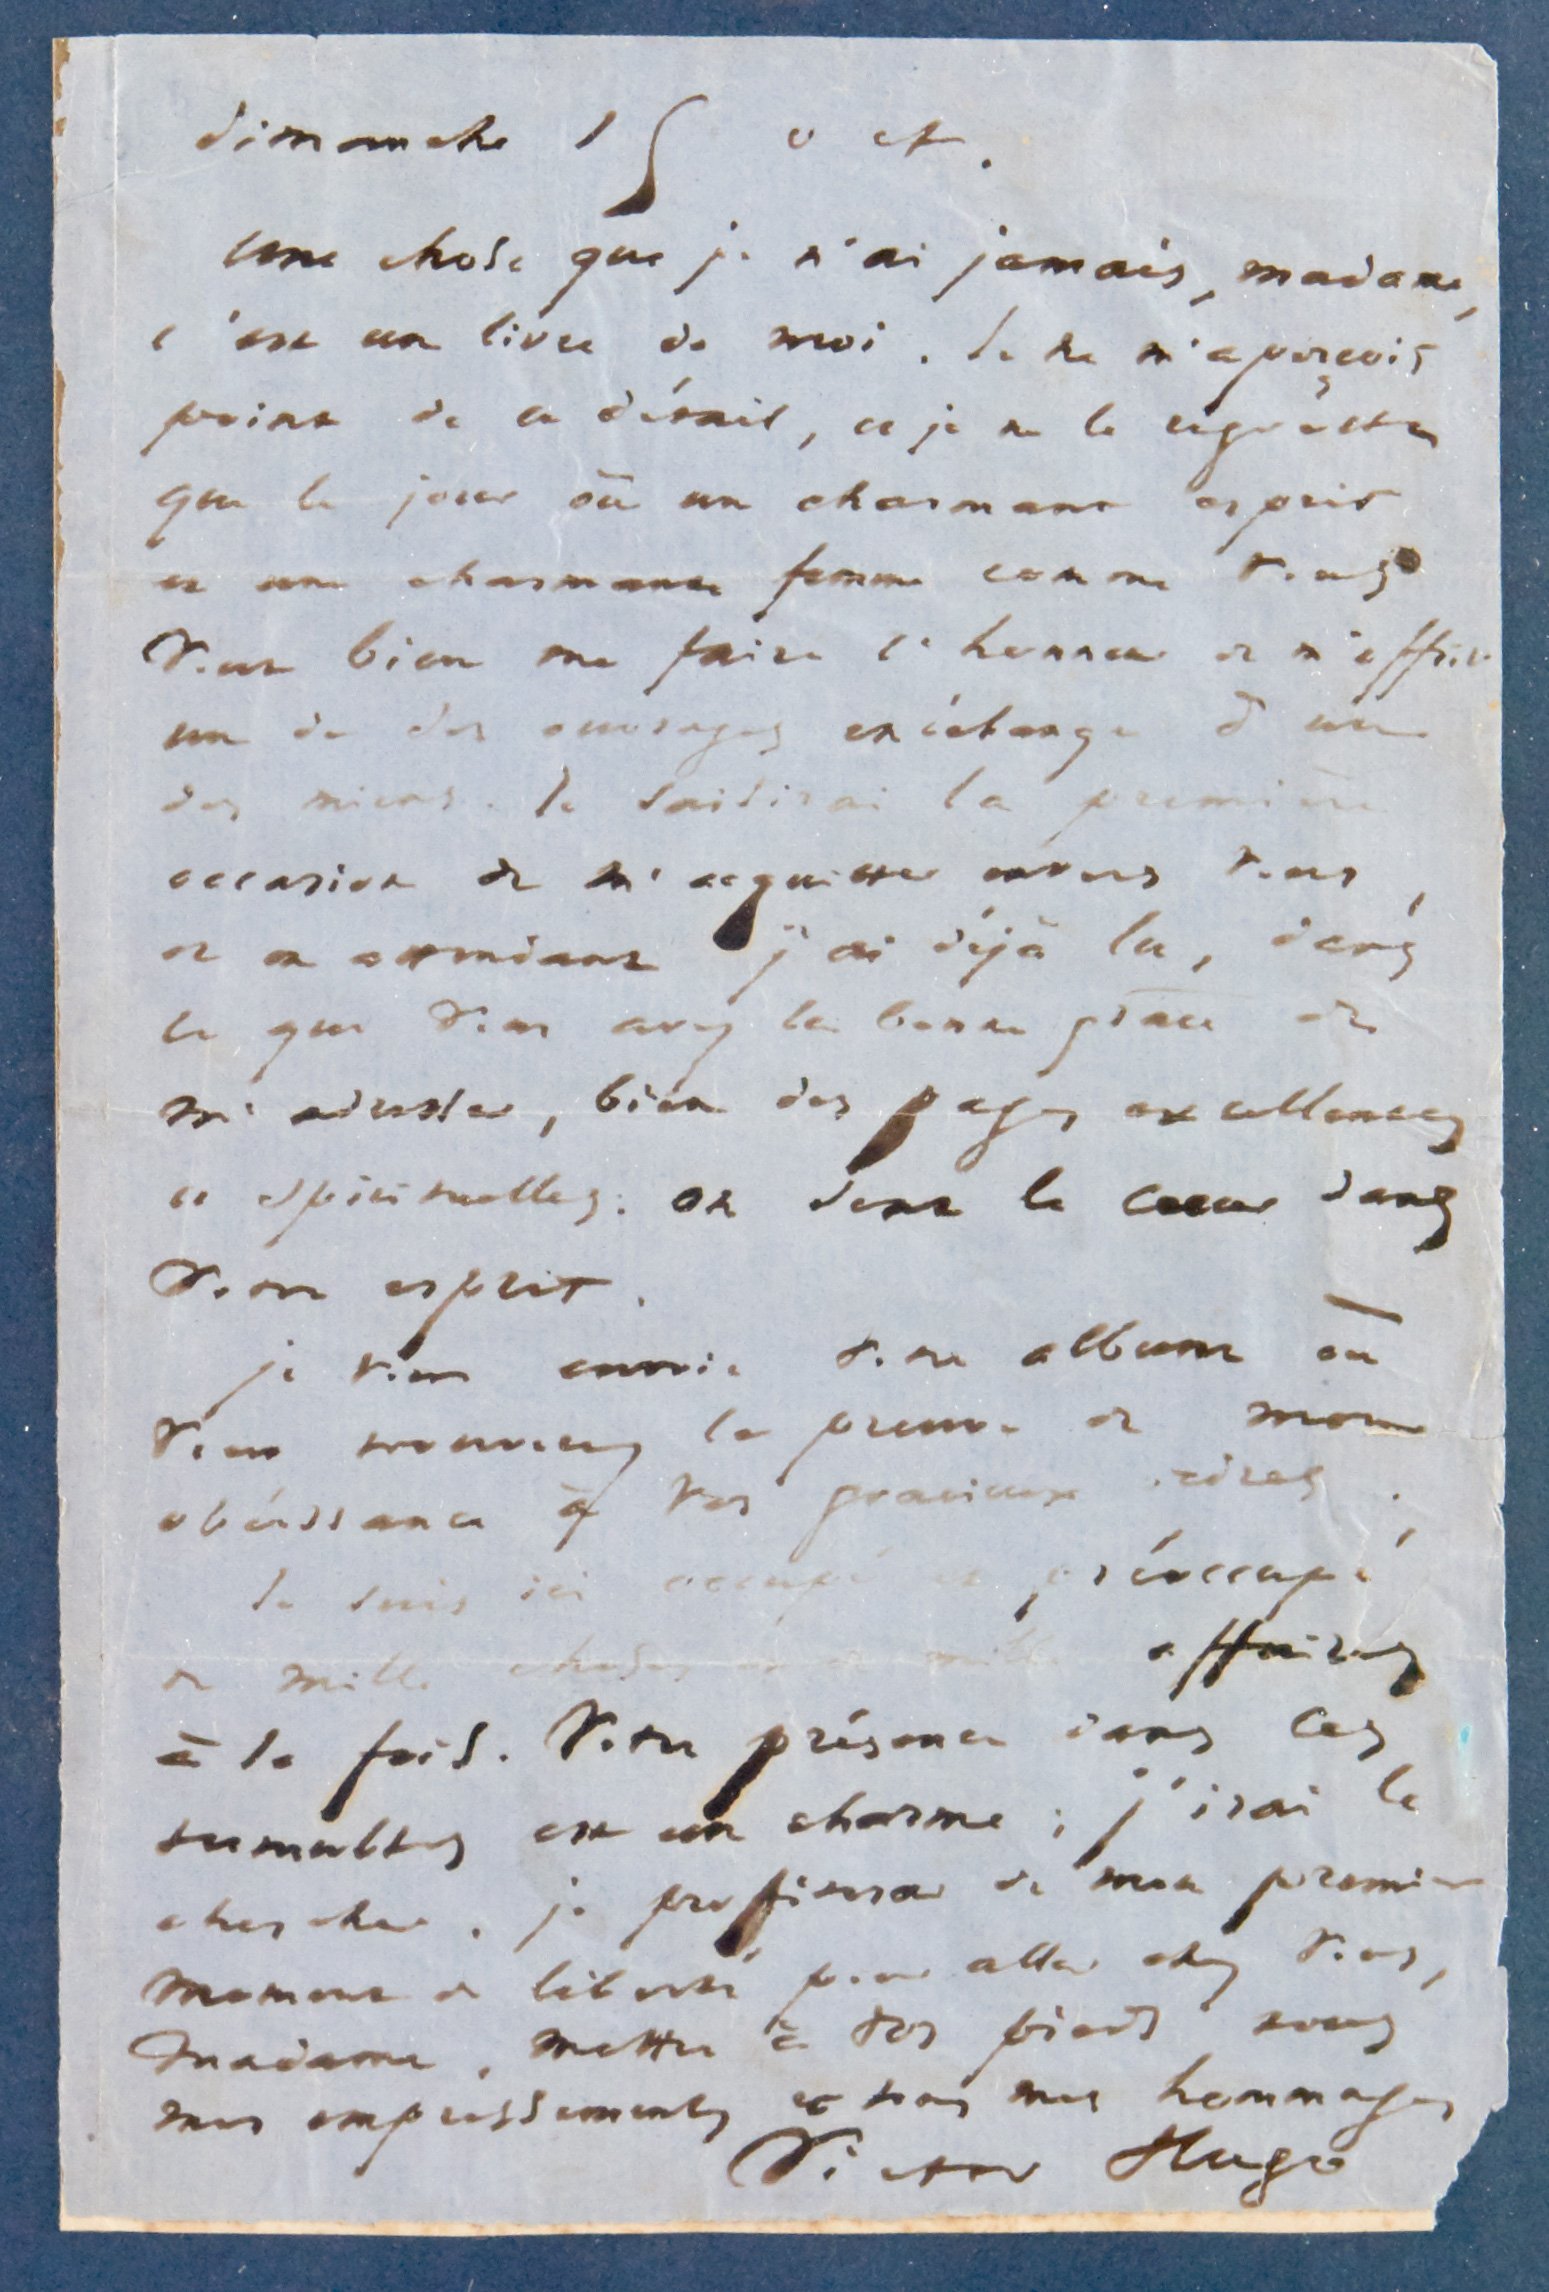 dimanche 15 oct.
Une chose que je n'ai jamais, madame,
c'est un livre de moi. Je ne m'aperçois
point de ce détail, et je ne le regrette
que le jour où un charmant esprit
et une charmante femme comme vous
veut bien me faire l'honneur de m'offrir
un de ses ouvrages en échange d'un
des miens. Je saisirai la première
occasion de m'acquitter envers vous,
et en attendant j'ai déjà lu, dans
ce que vous avez la bonne grâce de
m'adresser, bien des pages excellentes
et spirituelles. On sent le coeur dans
votre esprit.
je vous envoie votre album où
vous trouverez la preuve de mon
obéissance à vos gracieux ordres.
Je suis ici occupé et préoccupé
de mille choses et de mille affaires
à la fois. Votre présence dans ces
tumultes est un charme ; j'irai le
chercher. je profiterai de mon premier
moment de liberté pour aller chez vous,
madame, mettre à vos pieds tous
mes empressements et tous mes hommages
Victor Hugo